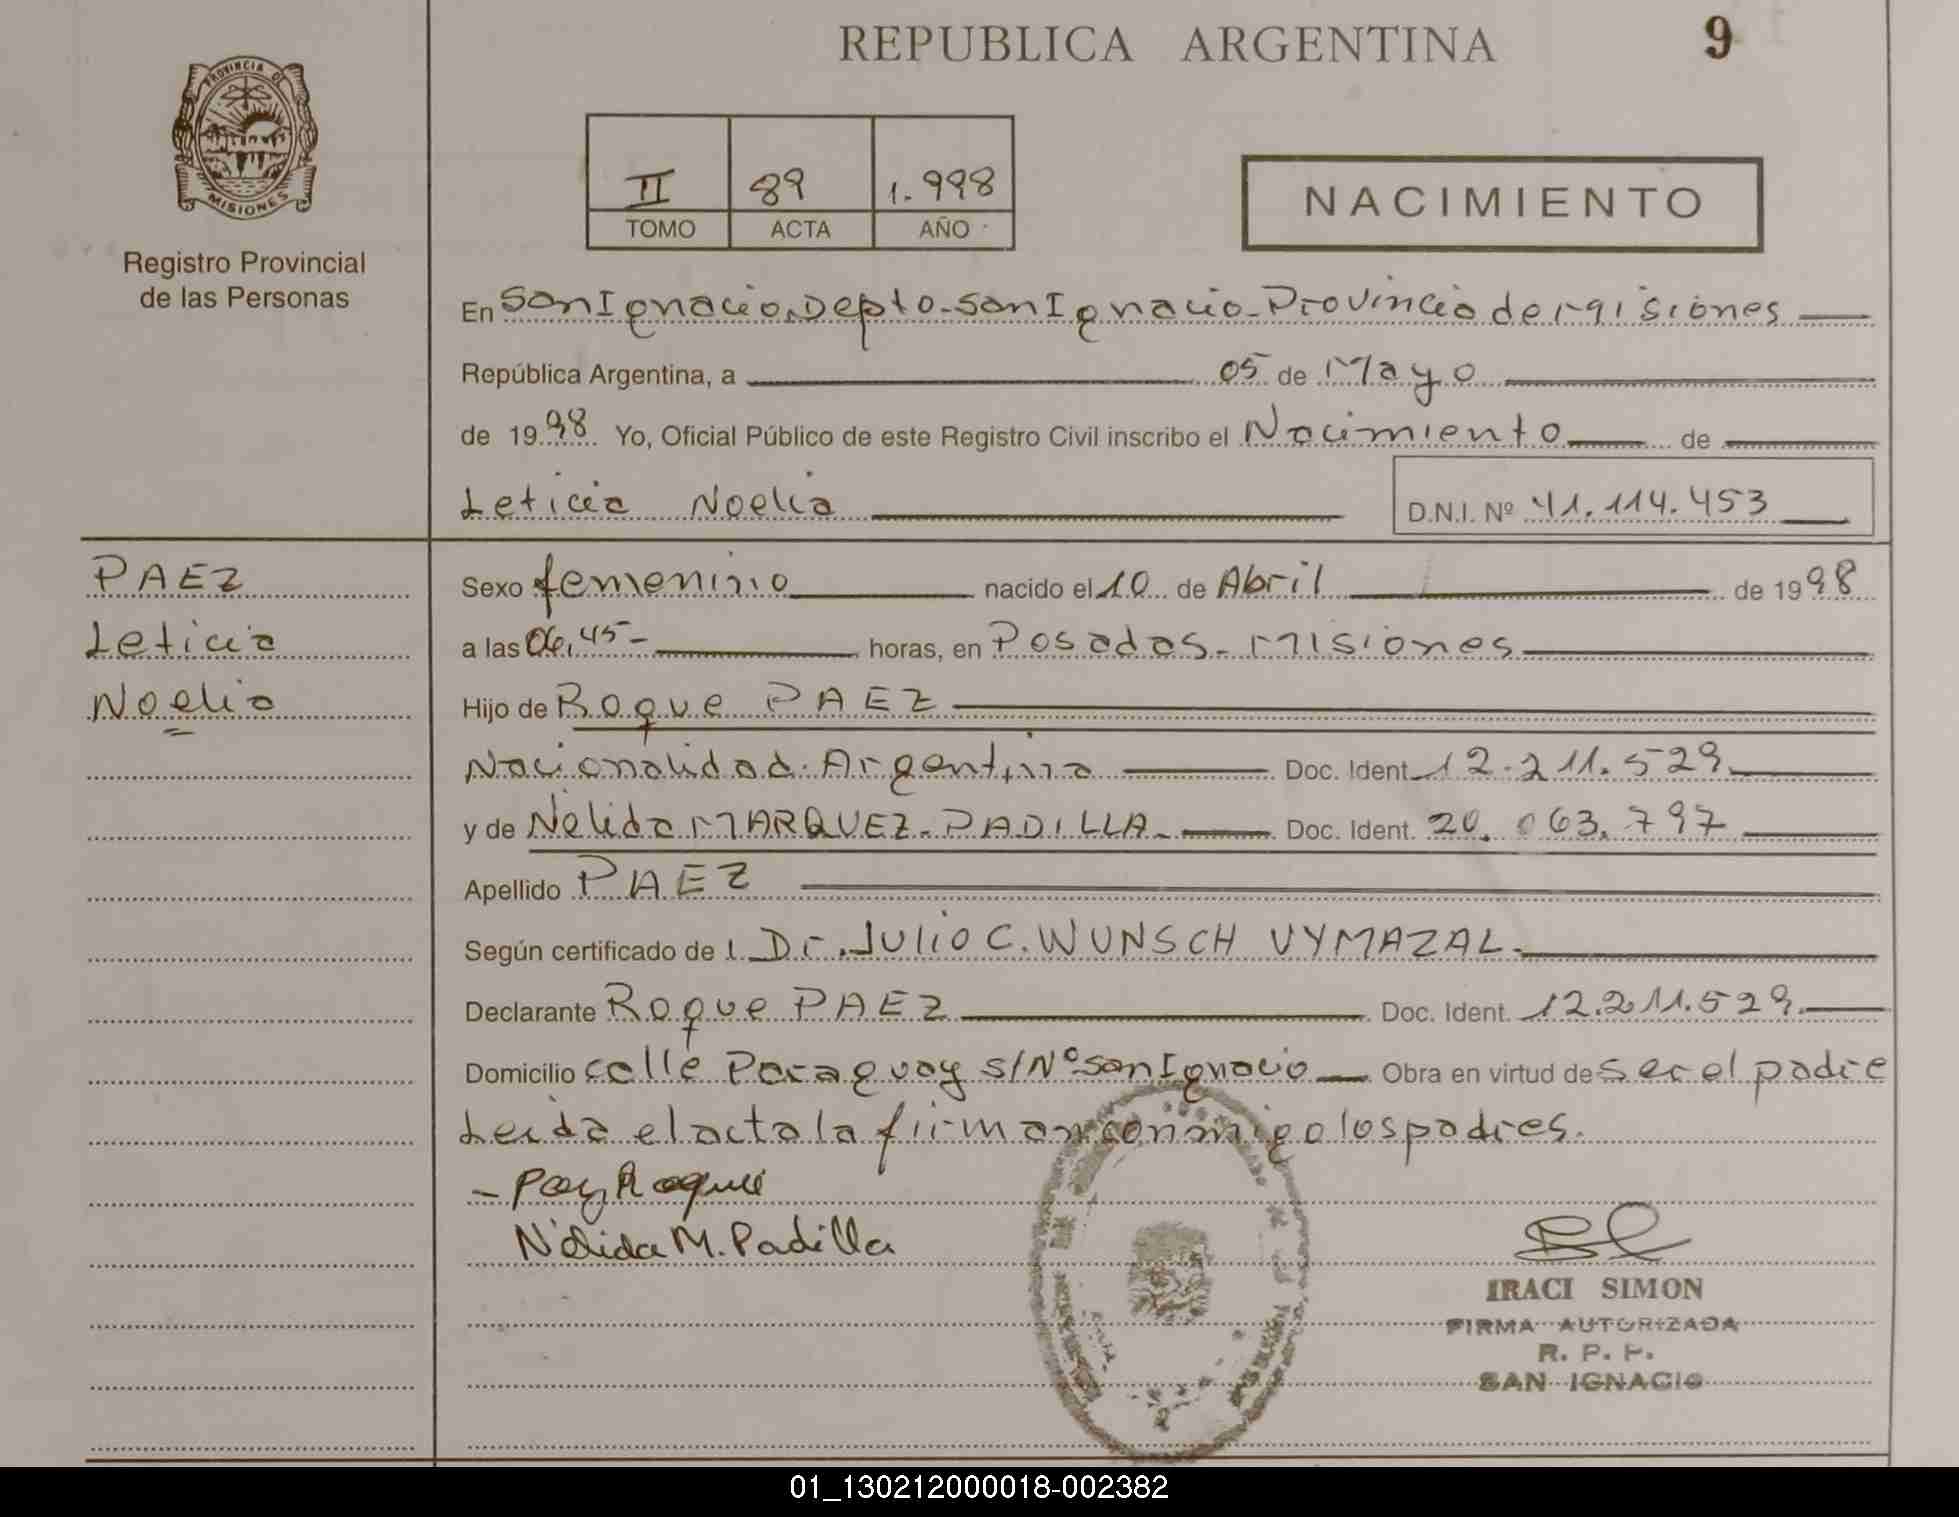 REPUBLICA ARGENTINA
9
PROVINCIA DE
MISIONES
Registro Provincial
de las Personas
II 89 1.998
TOMO ACTA AÑO
NACIMIENTO
En San Ignacio, Depto-San Ignacio-Provincia de Misiones
República Argentina, a 05 de Mayo
de 1998 Yo, Oficial Público de este Registro Civil inscribo el Nacimiento de
Leticia Noelia D.N.I. Nº 41.114.453
PAEZ
Leticia
Noelia
Sexo femenino nacido el 10 de Abril de 1998
a las 06,45- horas, en Posadas-Misiones
Hijo de Roque PAEZ
Nacionalidad Argentina Doc. Ident. 12.211.529
y de Nélida MARQUEZ-PADILLA- Doc. Ident. 20.063.797
Apellido PAEZ
Según certificado de l Dr. JULIO C. WUNSCH VYMAZAL-
Declarante Roque PAEZ Doc. Ident. 12.211.529
Domicilio calle Paraguay s/Nº San Ignacio Obra en virtud de ser el padre
Leída el acta la firman conmigo los padres.
- Paez Roque
Nélida M. Padilla
IRACI SIMON
FIRMA AUTORIZADA
R. P. P.
SAN IGNACIO
01_130212000018-002382